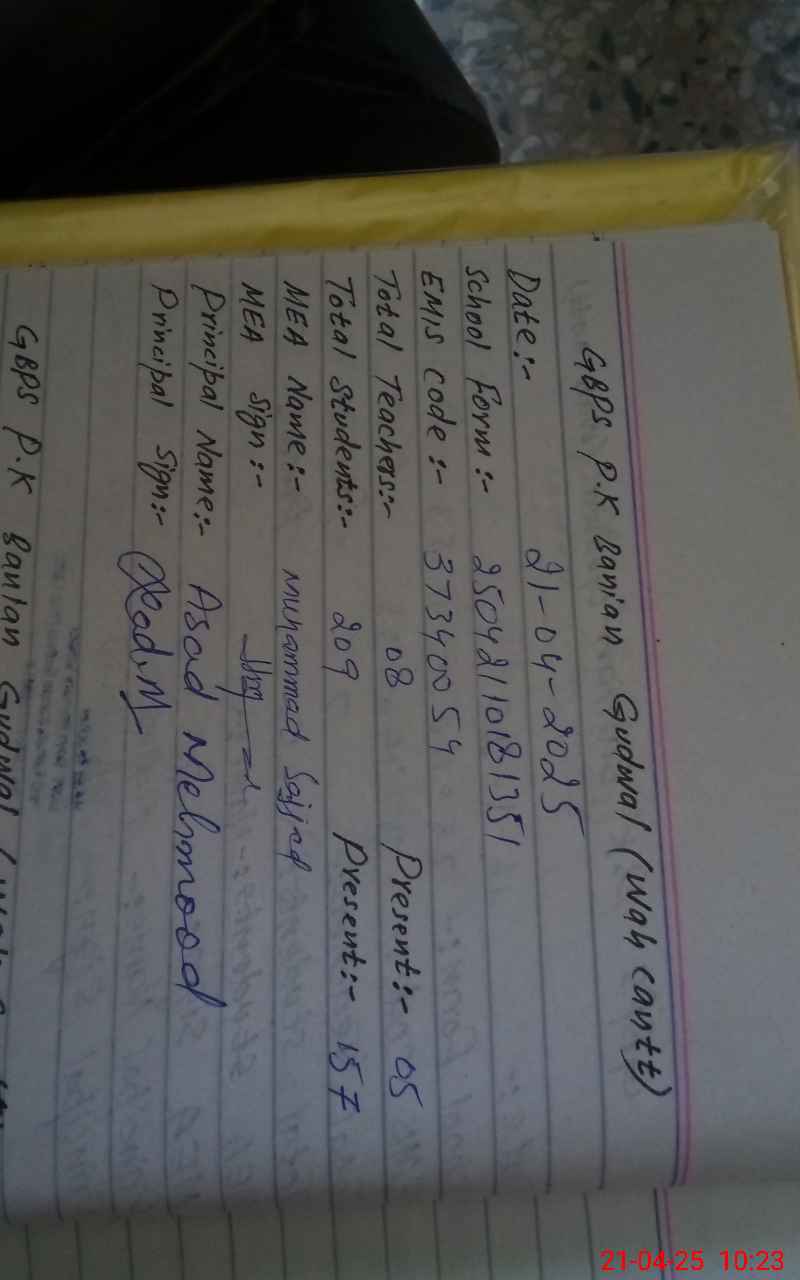 GBPS P.K Banian Gudwal (Wah Cantt)
Date:- 21-04-2025
School Form:- 25042110181351
EMIS Code:- 37340054
Total Teachers:- 08 Present:- 05
Total Students:- 209 Present:- 157
MEA Name:- Muhammad Sajjad
MEA Sign:-
Principal Name:- Asad Mehmood
Principal Sign:- Asad.M
GBPS P.K Banian Gudwal
21-04-25 10:23